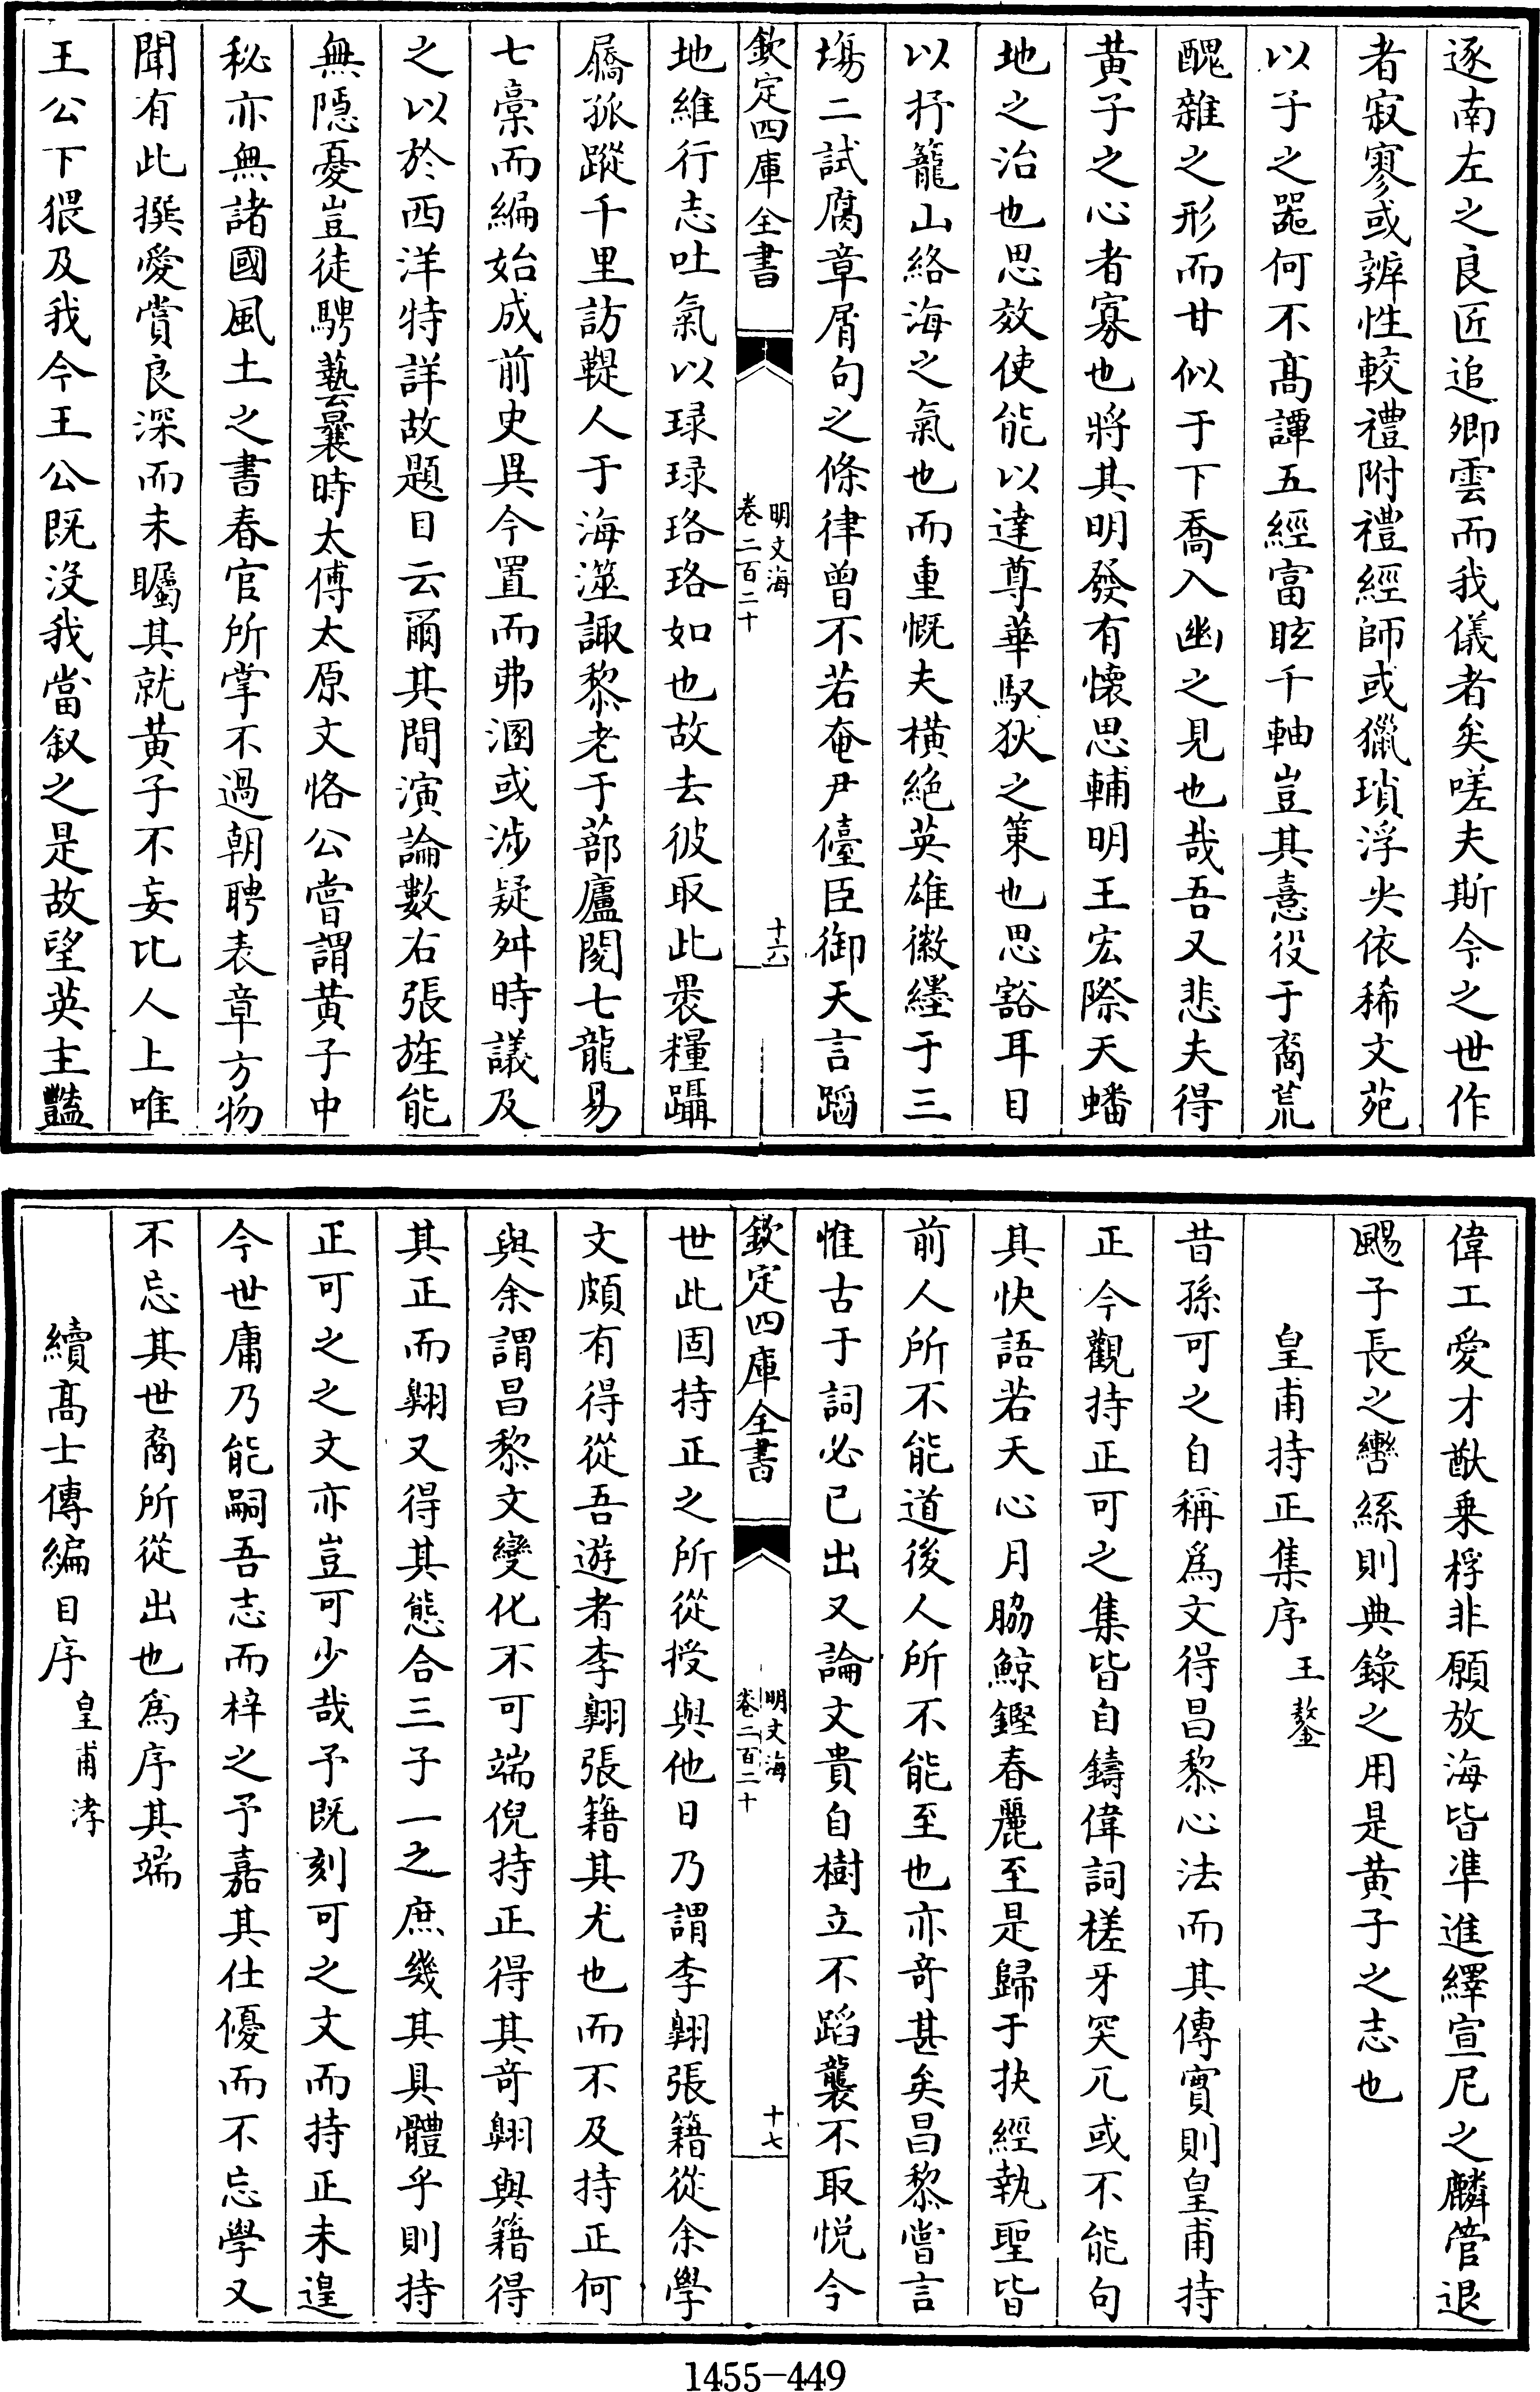 逐南左之良匠追卿雲而我儀者矣嗟夫斯今之世作
者寂寥或辨性較禮附禮經師或獵瑣浮尖依稀文苑
以子之噐何不髙譚五經富眩千軸豈其憙役于裔荒
醜雜之形而甘似于下喬入幽之見也哉吾又悲夫得
黄子之心者寡也將其明發有懐思輔明王宏際天蟠
地之治也思效使能以達尊華馭狄之策也思豁耳目
以抒籠山絡海之氣也而重慨夫橫絶英雄徽纆于三
塲二試腐章屑句之條律曽不若奄尹儓臣御天言蹈
欽定四庫全書
明文海
卷二百二十
十六
地維行志吐氣以琭琭珞珞如也故去彼取此褁糧躡
屩孤蹤千里訪鞮人于海澨諏黎老于蔀廬閱七龍易
七槀而編始成前史異今置而弗溷或涉疑舛時議及
之以於西洋特詳故題目云爾其間演論數右張旌能
無隠憂豈徒騁藝曩時太傅太原文恪公嘗謂黄子中
秘亦無諸國風土之書春官所掌不過朝聘表章方物
聞有此撰愛賞良深而未矚其就黄子不妄比人上唯
王公下猥及我今王公既沒我當叙之是故望英主豔
偉工愛才猷乗桴非願放海皆凖進繹宣尼之麟管退
颺子長之轡絲則典錄之用是黄子之志也
皇甫持正集序 王鏊
昔孫可之自稱為文得昌黎心法而其傳實則皇甫持
正今觀持正可之集皆自鑄偉詞槎牙突兀或不能句
其快語若天心月脇鯨鏗春麗至是歸于抉經執聖皆
前人所不能道後人所不能至也亦竒甚矣昌黎嘗言
惟古于詞必已出又論文貴自樹立不蹈襲不取悅今
欽定四庫全書
明文海
卷二百二十
十七
世此固持正之所從授與他日乃謂李翺張籍從余學
文頗有得從吾遊者李翺張籍其尤也而不及持正何
與余謂昌黎文變化不可端倪持正得其竒翺與籍得
其正而翺又得其態合三子一之庶幾其具體乎則持
正可之之文亦豈可少哉予既刻可之文而持正未遑
今世庸乃能嗣吾志而梓之予嘉其仕優而不忘學又
不忘其世裔所從出也為序其端
續髙士傳編目序 皇甫涍
1455-449